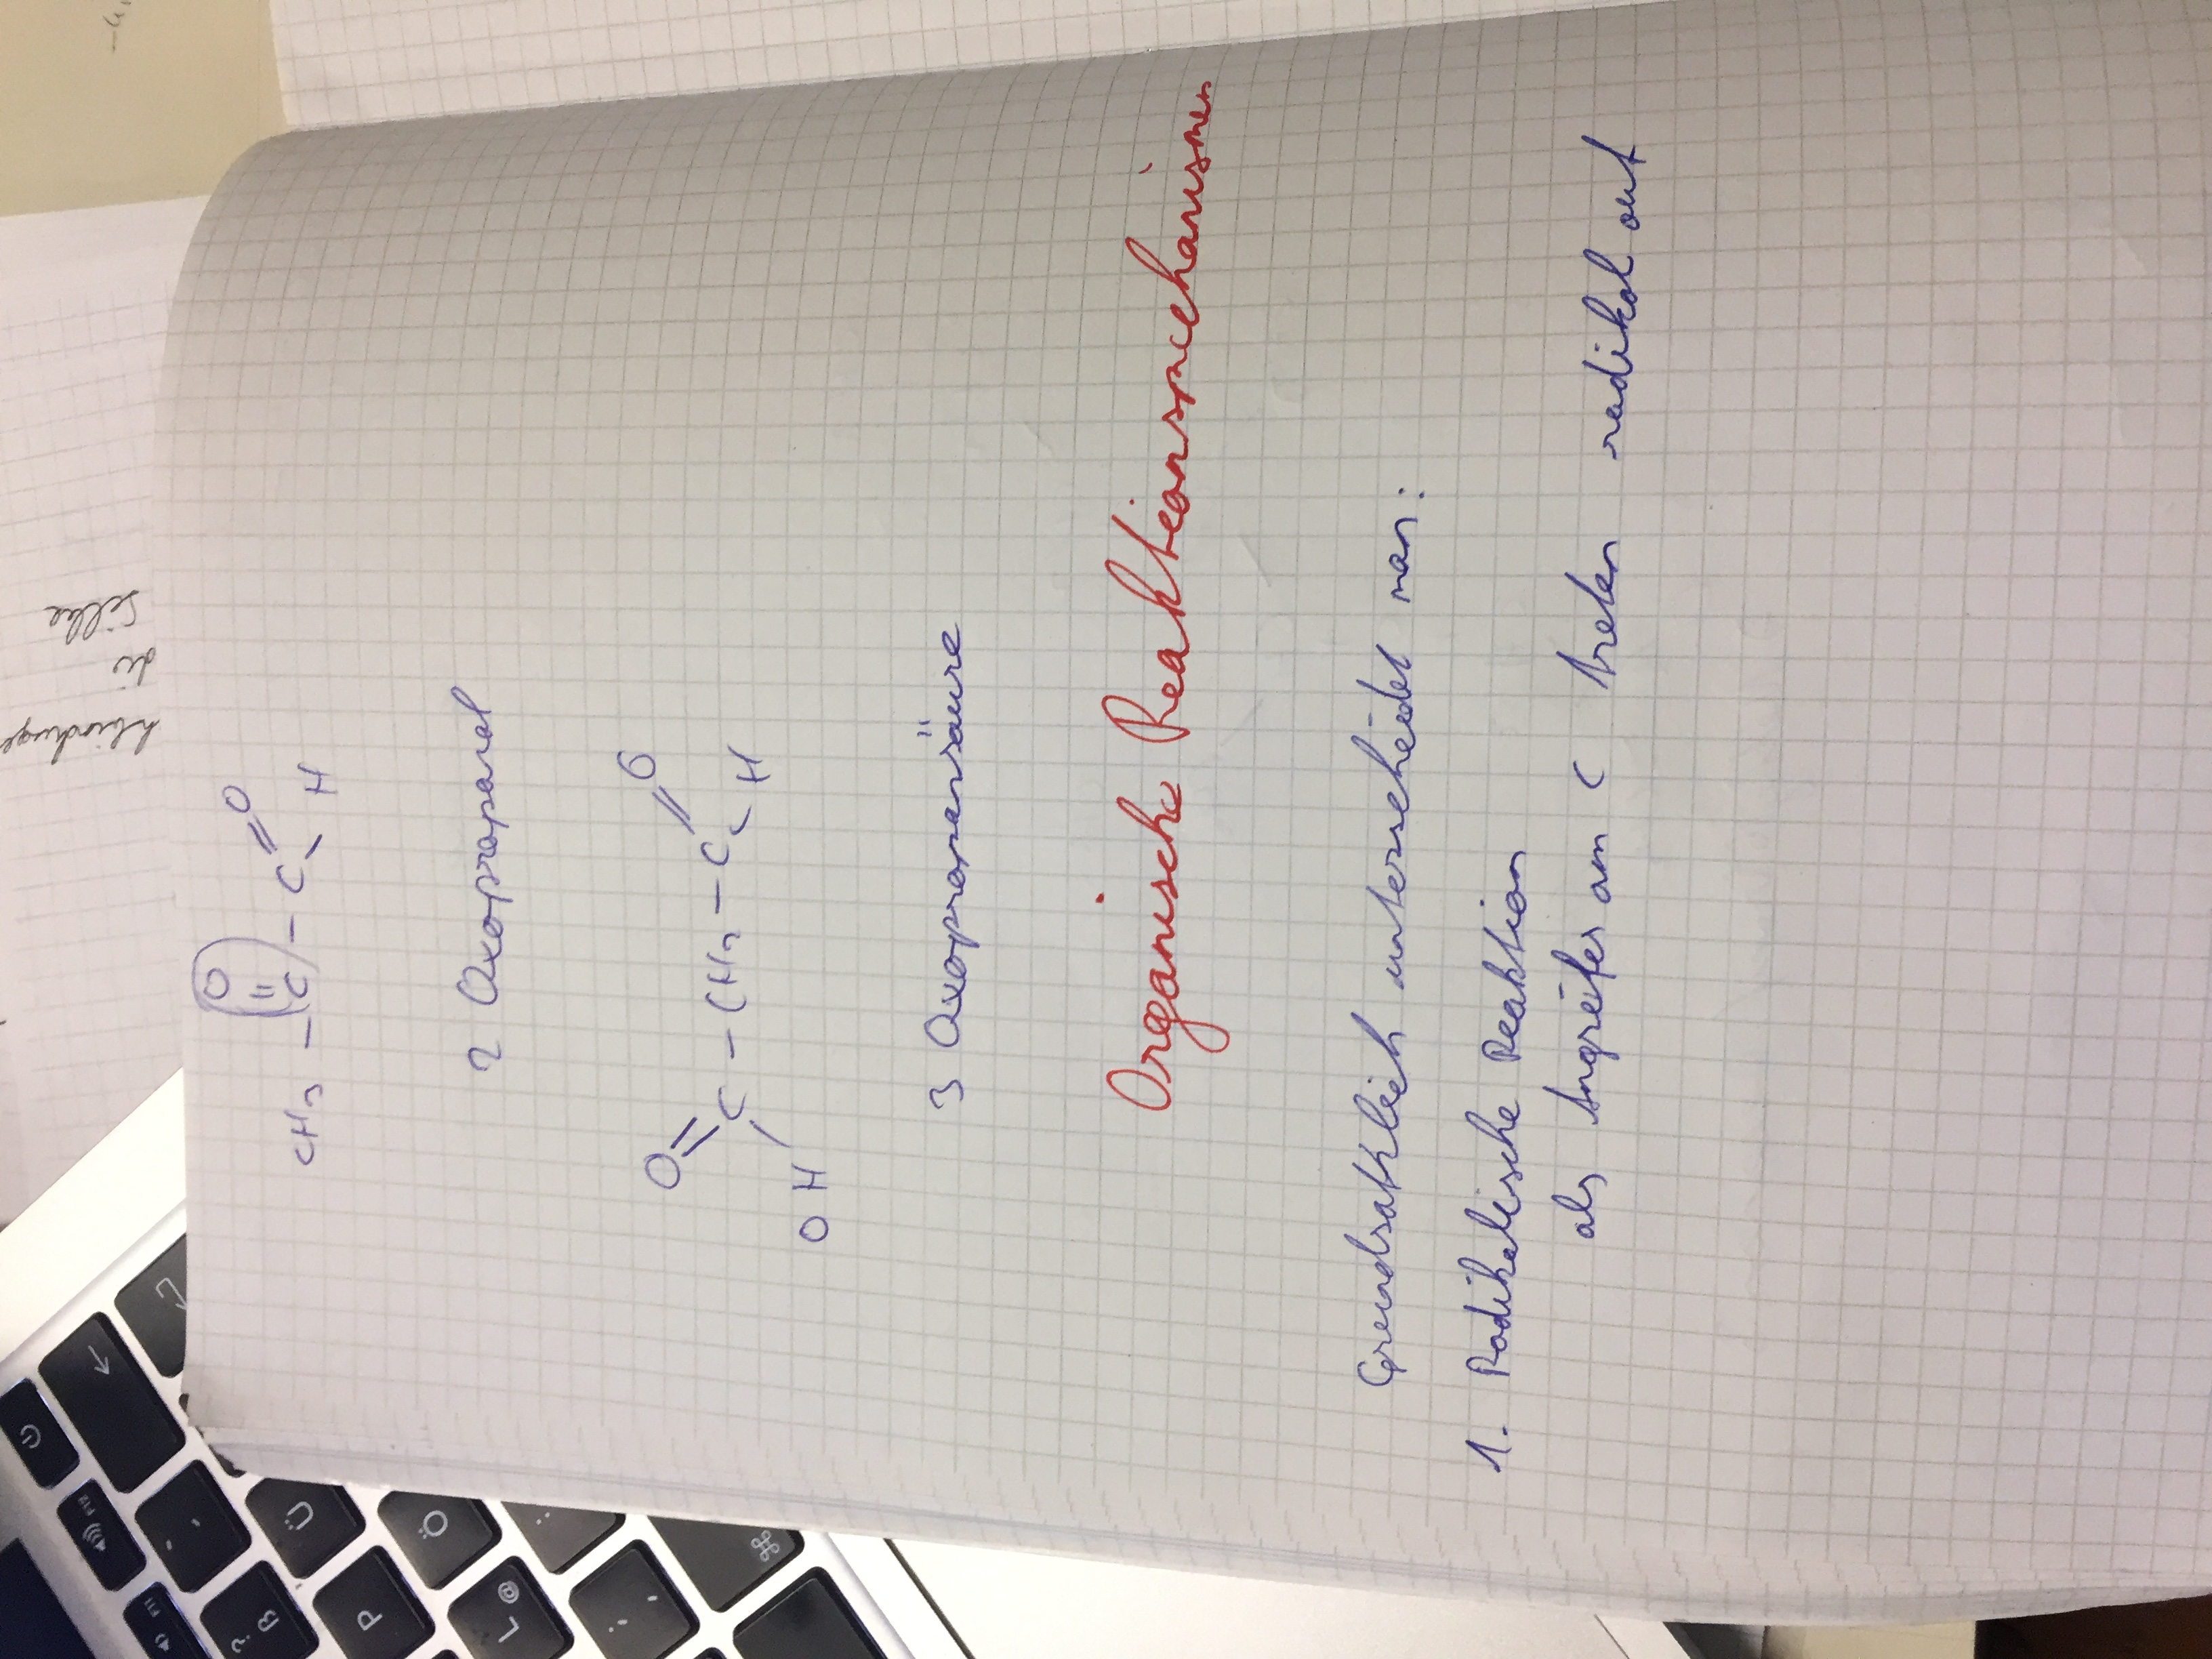 hbindunge
die
Silbe
O
=
CH3 - C - C = O
H
2 Oxopropanal
O O
C - CH2 - C
OH H
3 Oxopropansäure
Organische Reaktionsmechanismen
Grundsatzlich unterscheidet man:
1. Radikalische Reaktion
als Angreifer am C treten radikal auf
F12
F11
?
ß
Ü
P
Ö
L @
;
,
⌘